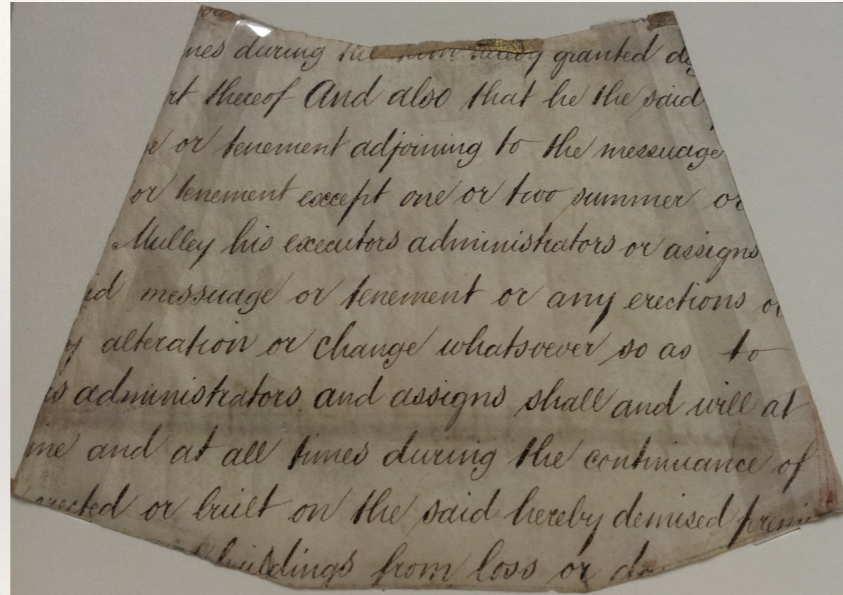 during the term hereby granted
thereof And also that he the said
or tenement adjoining to the messuage
or tenement except one or two summer or
Mulley his executors administrators or assigns
messuage or tenement or any erections or
alteration or change whatsoever so as to
administrators and assigns shall and will at
and at all times during the continuance of
erected or built on the said hereby demised
buildings from loss or